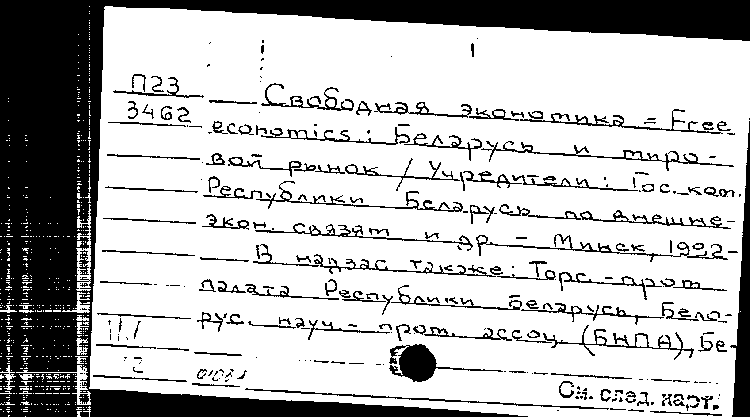 П23
3462
Свободная экономика = Free
economics: Беларусь и миро-
вой рынок / Учредители: Гос. ком.
Республики Беларусь по внешне-
экон. связям и др. - Минск, 1992-
В надзаг. также: Торг.-пром.
палата Республики Беларусь, Бело-
рус. науч.-пром. ассоц. (БНПА), Бе-
См. след. карт.